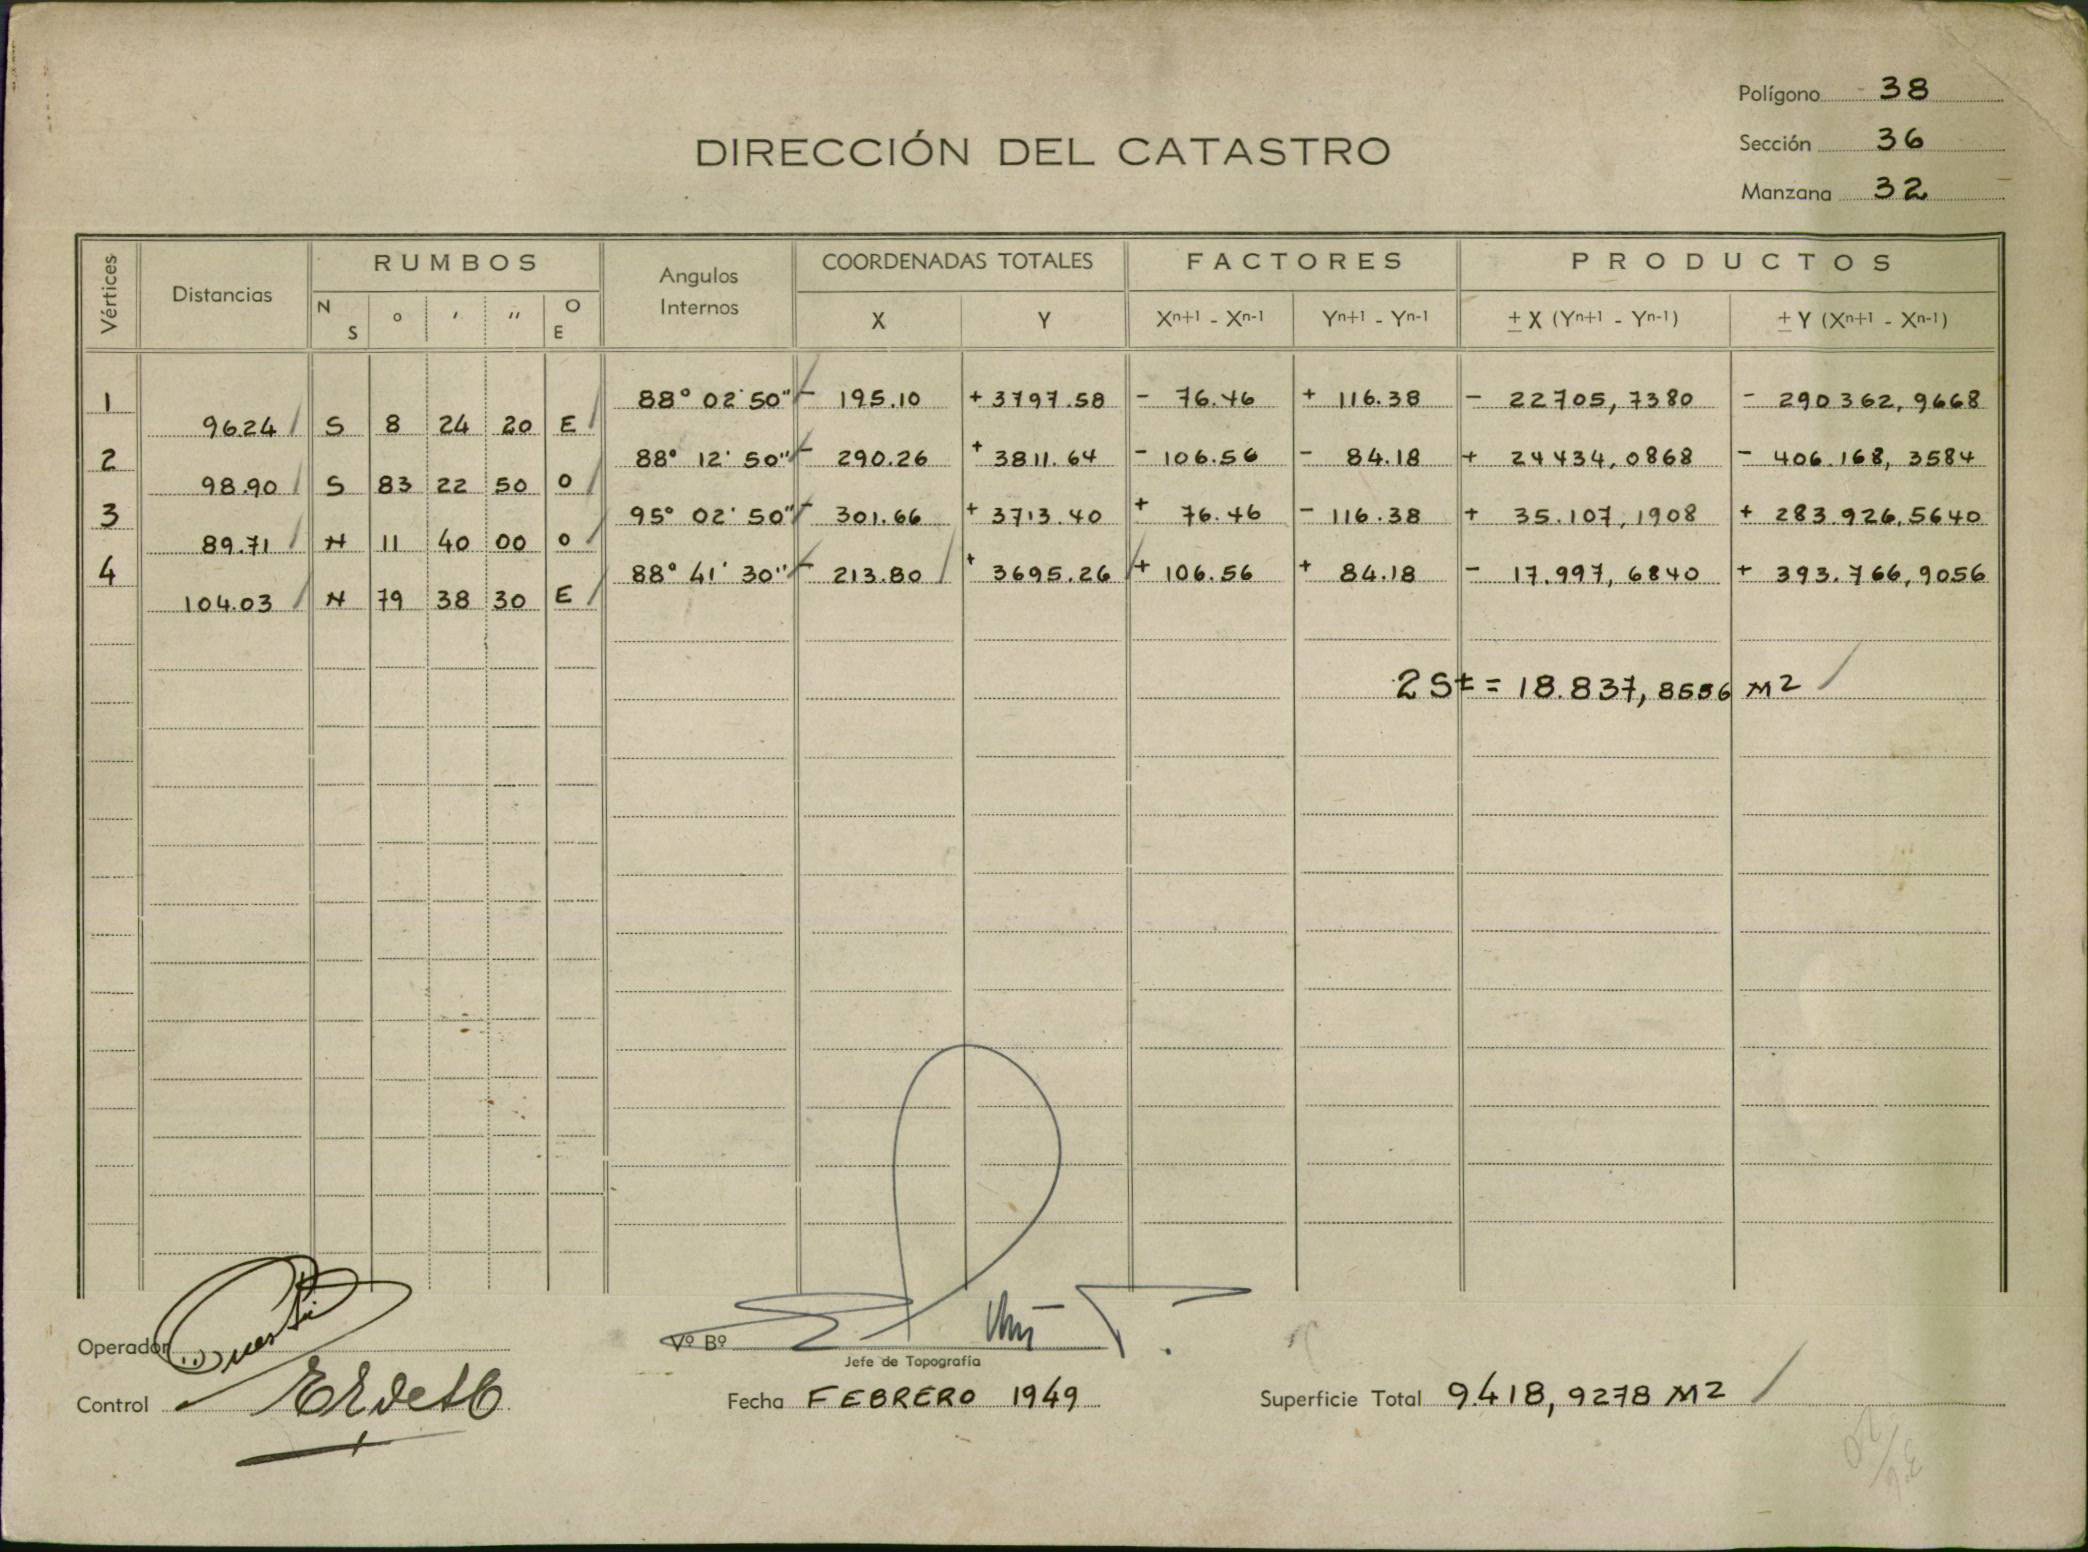 Polígono 38
DIRECCIÓN DEL CATASTRO
Sección 36
Manzana 32
Vértices Distancias RUMBOS Angulos Internos COORDENADAS TOTALES FACTORES PRODUCTOS
N S ° ' " O E X Y Xn+1 - Xn-1 Yn+1 - Yn-1 ± X (Yn+1 - Yn-1) ± Y (Xn+1 - Xn-1)
1 88° 02' 50" - 195.10 + 3797.58 - 76.46 + 116.38 - 22705,7380 - 290362,9668
96.24 S 8 24 20 E
2 88° 12' 50" - 290.26 + 3811.64 - 106.56 - 84.18 + 24434,0868 - 406.168,3584
98.90 S 83 22 50 O
3 95° 02' 50" - 301.66 + 3713.40 + 76.46 - 116.38 + 35.107,1908 + 283.926,5640
89.71 N 11 40 00 O
4 88° 41' 30" - 213.80 + 3695.26 + 106.56 + 84.18 - 17.997,6840 + 393.766,9056
104.03 N 79 38 30 E
2 St = 18.837,8556 M2
Operador
Vº Bº
Jefe de Topografía
Control
Fecha FEBRERO 1949
Superficie Total 9.418,9278 M2